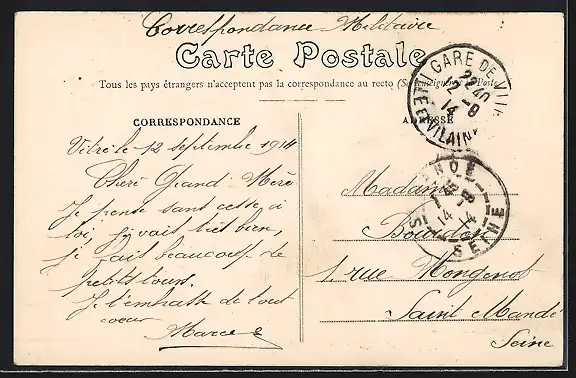 Correspondance Militaire
Carte Postale
Tous les pays étrangers n'acceptent pas la correspondance au recto (Se renseigner à la Poste)
CORRESPONDANCE
ADRESSE
GARE DE VIT
22 40
12 - 9
14
ET VILAINE
Vitré le 12 septembre 1914
Chère Grand Mère
Je pense sans cesse à
toi, je vais très bien,
je fais beaucoup de
petits tours.
Je t'embrasse de tout
coeur
Marcel
Madame
Bourdon
1, rue Mongenot
Saint Mandé
Seine
14
14
SEINE